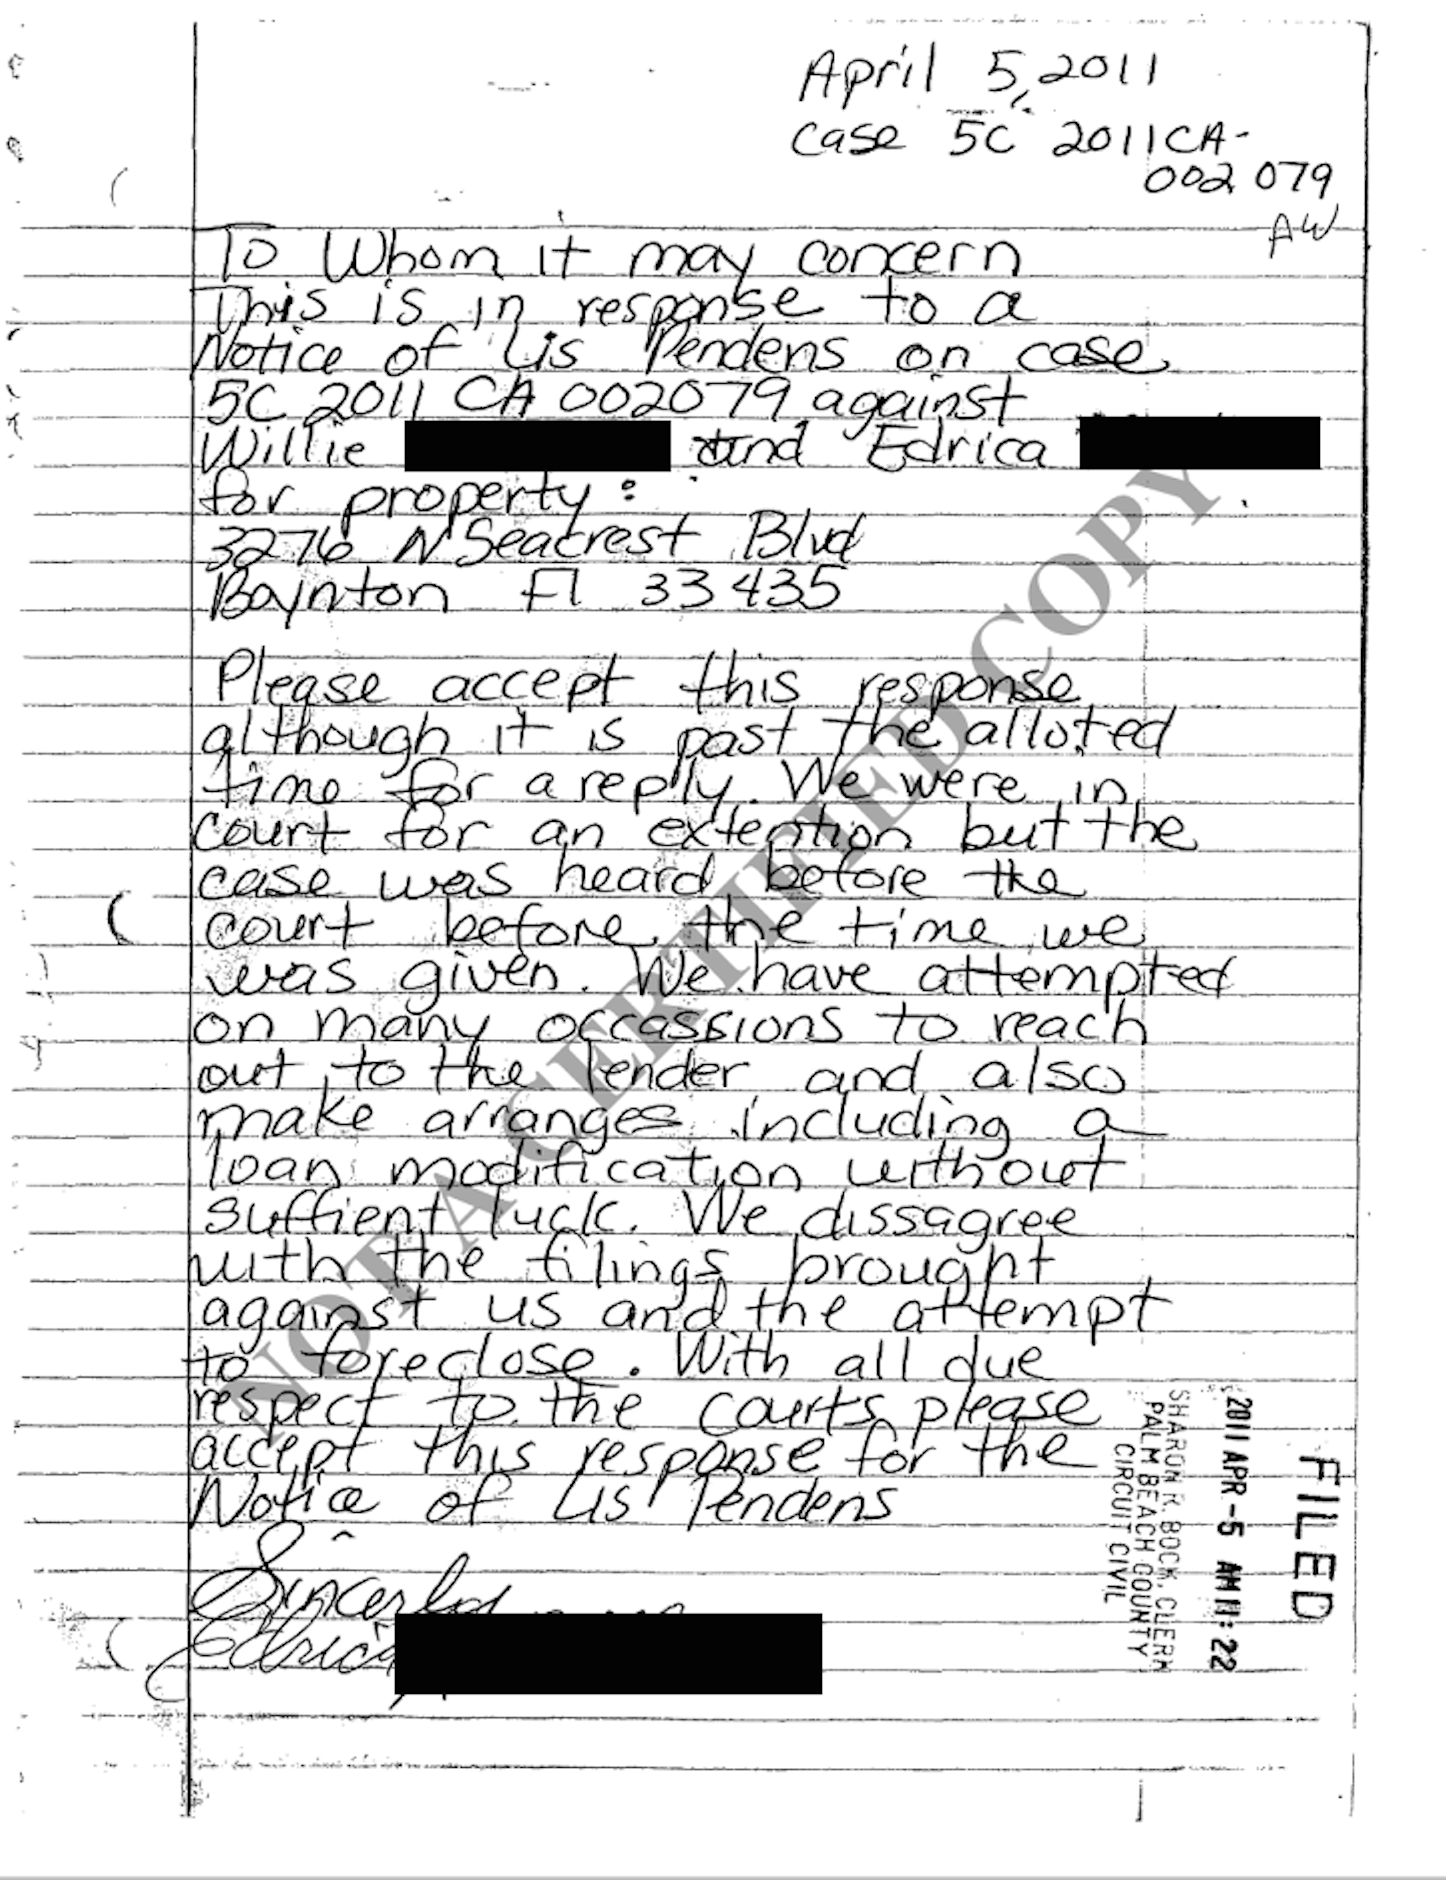 April 5, 2011
Case 5C 2011CA-
002079
AW
To Whom it may concern
This is in response to a
Notice of Lis Pendens on case
5C 2011 CA 002079 against
Willie and Edrica
for property:
3276 N Seacrest Blvd
Boynton Fl 33435
Please accept this response
although it is past the alloted
time for a reply. We were in
court for an extention but the
case was heard before the
court before the time we
was given. We have attempted
on many occassions to reach
out to the lender and also
make arranges including a
loan modification without
suffient luck. We dissagree
with the filings brought
against us and the attempt
to foreclose. With all due
respect to the courts please
accept this response for the
Notice of Lis Pendens
Sincerly
Edrica
NOT A CERTIFIED COPY
FILED
2011 APR -5 AM 11:22
SHARON R. BOCK, CLERK
PALM BEACH COUNTY
CIRCUIT CIVIL